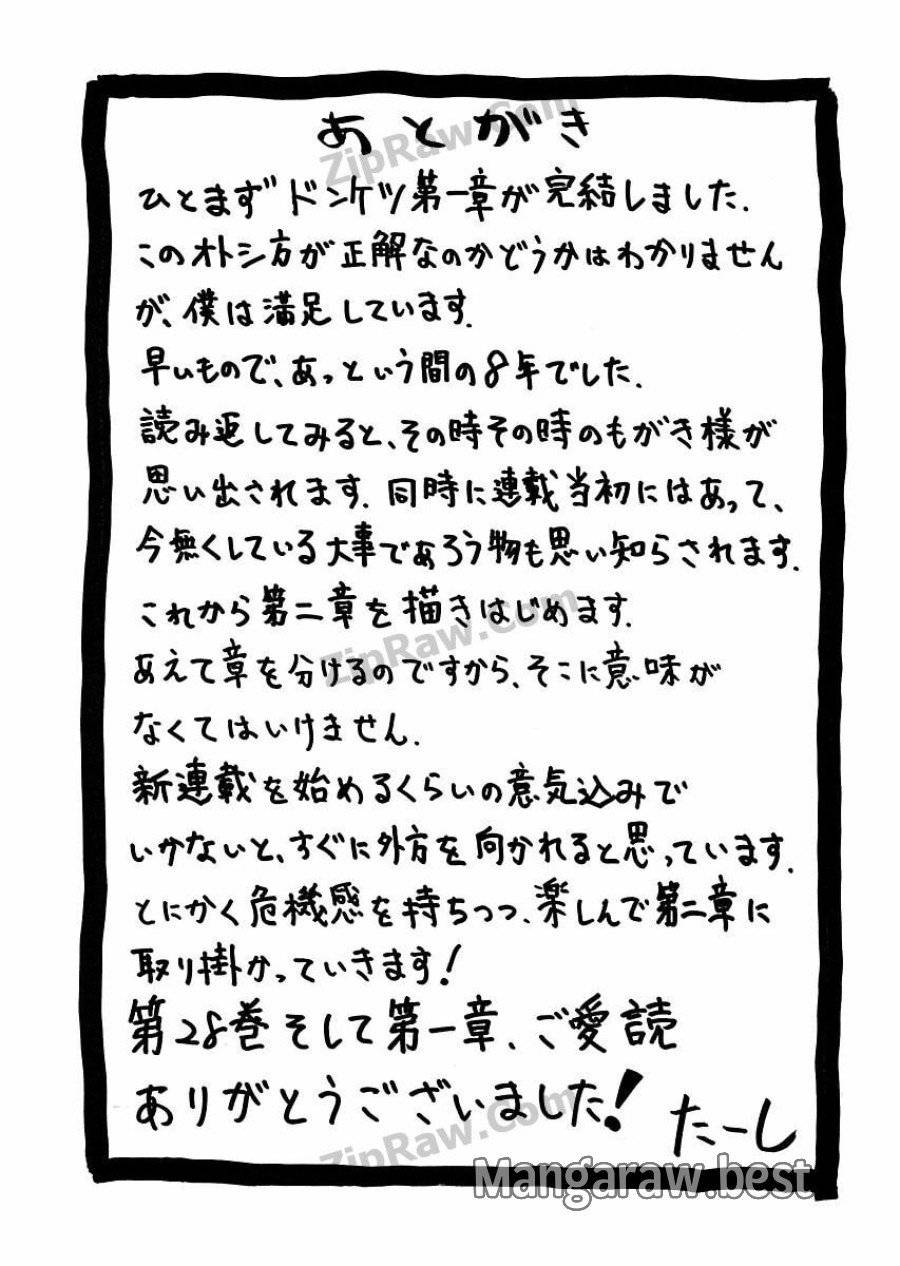 あとがき
ひとまず“ドンケツ第一章が完結しました.
このオトシ方が正解なのかどうかはわかりません
が、僕は満足しています.
早いもので、あっという間の8年でした.
読み返してみると、その時その時のもがき様が
思い出されます. 同時に連載当初にはあって、
今無くしている大事であろう物も思い知らされます.
これから第二章を描きはじめます.
あえて章を分けるのですから、そこに意味が
なくてはいけません.
新連載を始めるくらいの意気込みで
いかないと、すぐに外方を向かれると思っています.
とにかく危機感を持ちつつ、楽しんで第二章に
取り掛かっていきます!
第28巻そして第一章、ご愛読
ありがとうございました!
たーし
ZipRaw.Com
ZipRaw.Com
ZipRaw.Com
Mangaraw.best